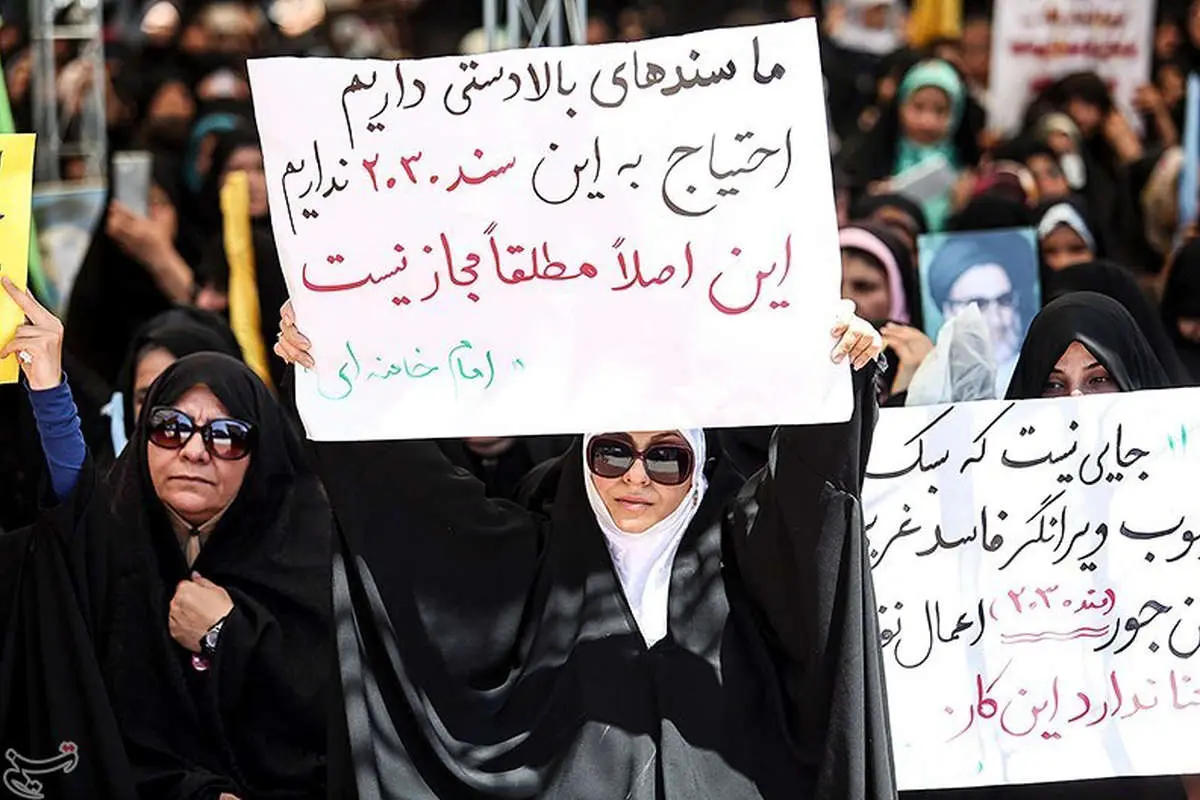 ما سندهای بالادستی داریم
احتیاج به این سند ۲۰۳۰ نداریم
این اصلاً مطلقاً مجاز نیست
"امام خامنه‌ای
"جایی نیست که سبک
یوب ویرانگر فاسد غربی
ن جور (سند ۲۰۳۰) اعمال نفو
عنا ندارد این کار.
تسنیم